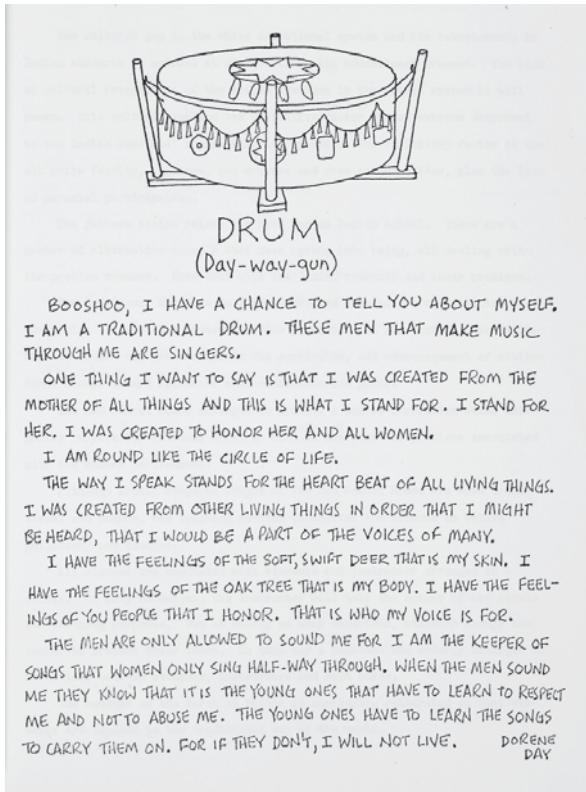 DRUM
(Day-way-gun)
BOOSHOO, I HAVE A CHANCE TO TELL YOU ABOUT MYSELF.
I AM A TRADITIONAL DRUM. THESE MEN THAT MAKE MUSIC
THROUGH ME ARE SINGERS.
ONE THING I WANT TO SAY IS THAT I WAS CREATED FROM THE
MOTHER OF ALL THINGS AND THIS IS WHAT I STAND FOR. I STAND FOR
HER. I WAS CREATED TO HONOR HER AND ALL WOMEN.
I AM ROUND LIKE THE CIRCLE OF LIFE.
THE WAY I SPEAK STANDS FOR THE HEART BEAT OF ALL LIVING THINGS.
I WAS CREATED FROM OTHER LIVING THINGS IN ORDER THAT I MIGHT
BE HEARD, THAT I WOULD BE A PART OF THE VOICES OF MANY.
I HAVE THE FEELINGS OF THE SOFT, SWIFT DEER THAT IS MY SKIN. I
HAVE THE FEELINGS OF THE OAK TREE THAT IS MY BODY. I HAVE THE FEEL-
INGS OF YOU PEOPLE THAT I HONOR. THAT IS WHO MY VOICE IS FOR.
THE MEN ARE ONLY ALLOWED TO SOUND ME FOR I AM THE KEEPER OF
SONGS THAT WOMEN ONLY SING HALF-WAY THROUGH. WHEN THE MEN SOUND
ME THEY KNOW THAT IT IS THE YOUNG ONES THAT HAVE TO LEARN TO RESPECT
ME AND NOT TO ABUSE ME. THE YOUNG ONES HAVE TO LEARN THE SONGS
TO CARRY THEM ON. FOR IF THEY DON'T, I WILL NOT LIVE. DORENE
DAY